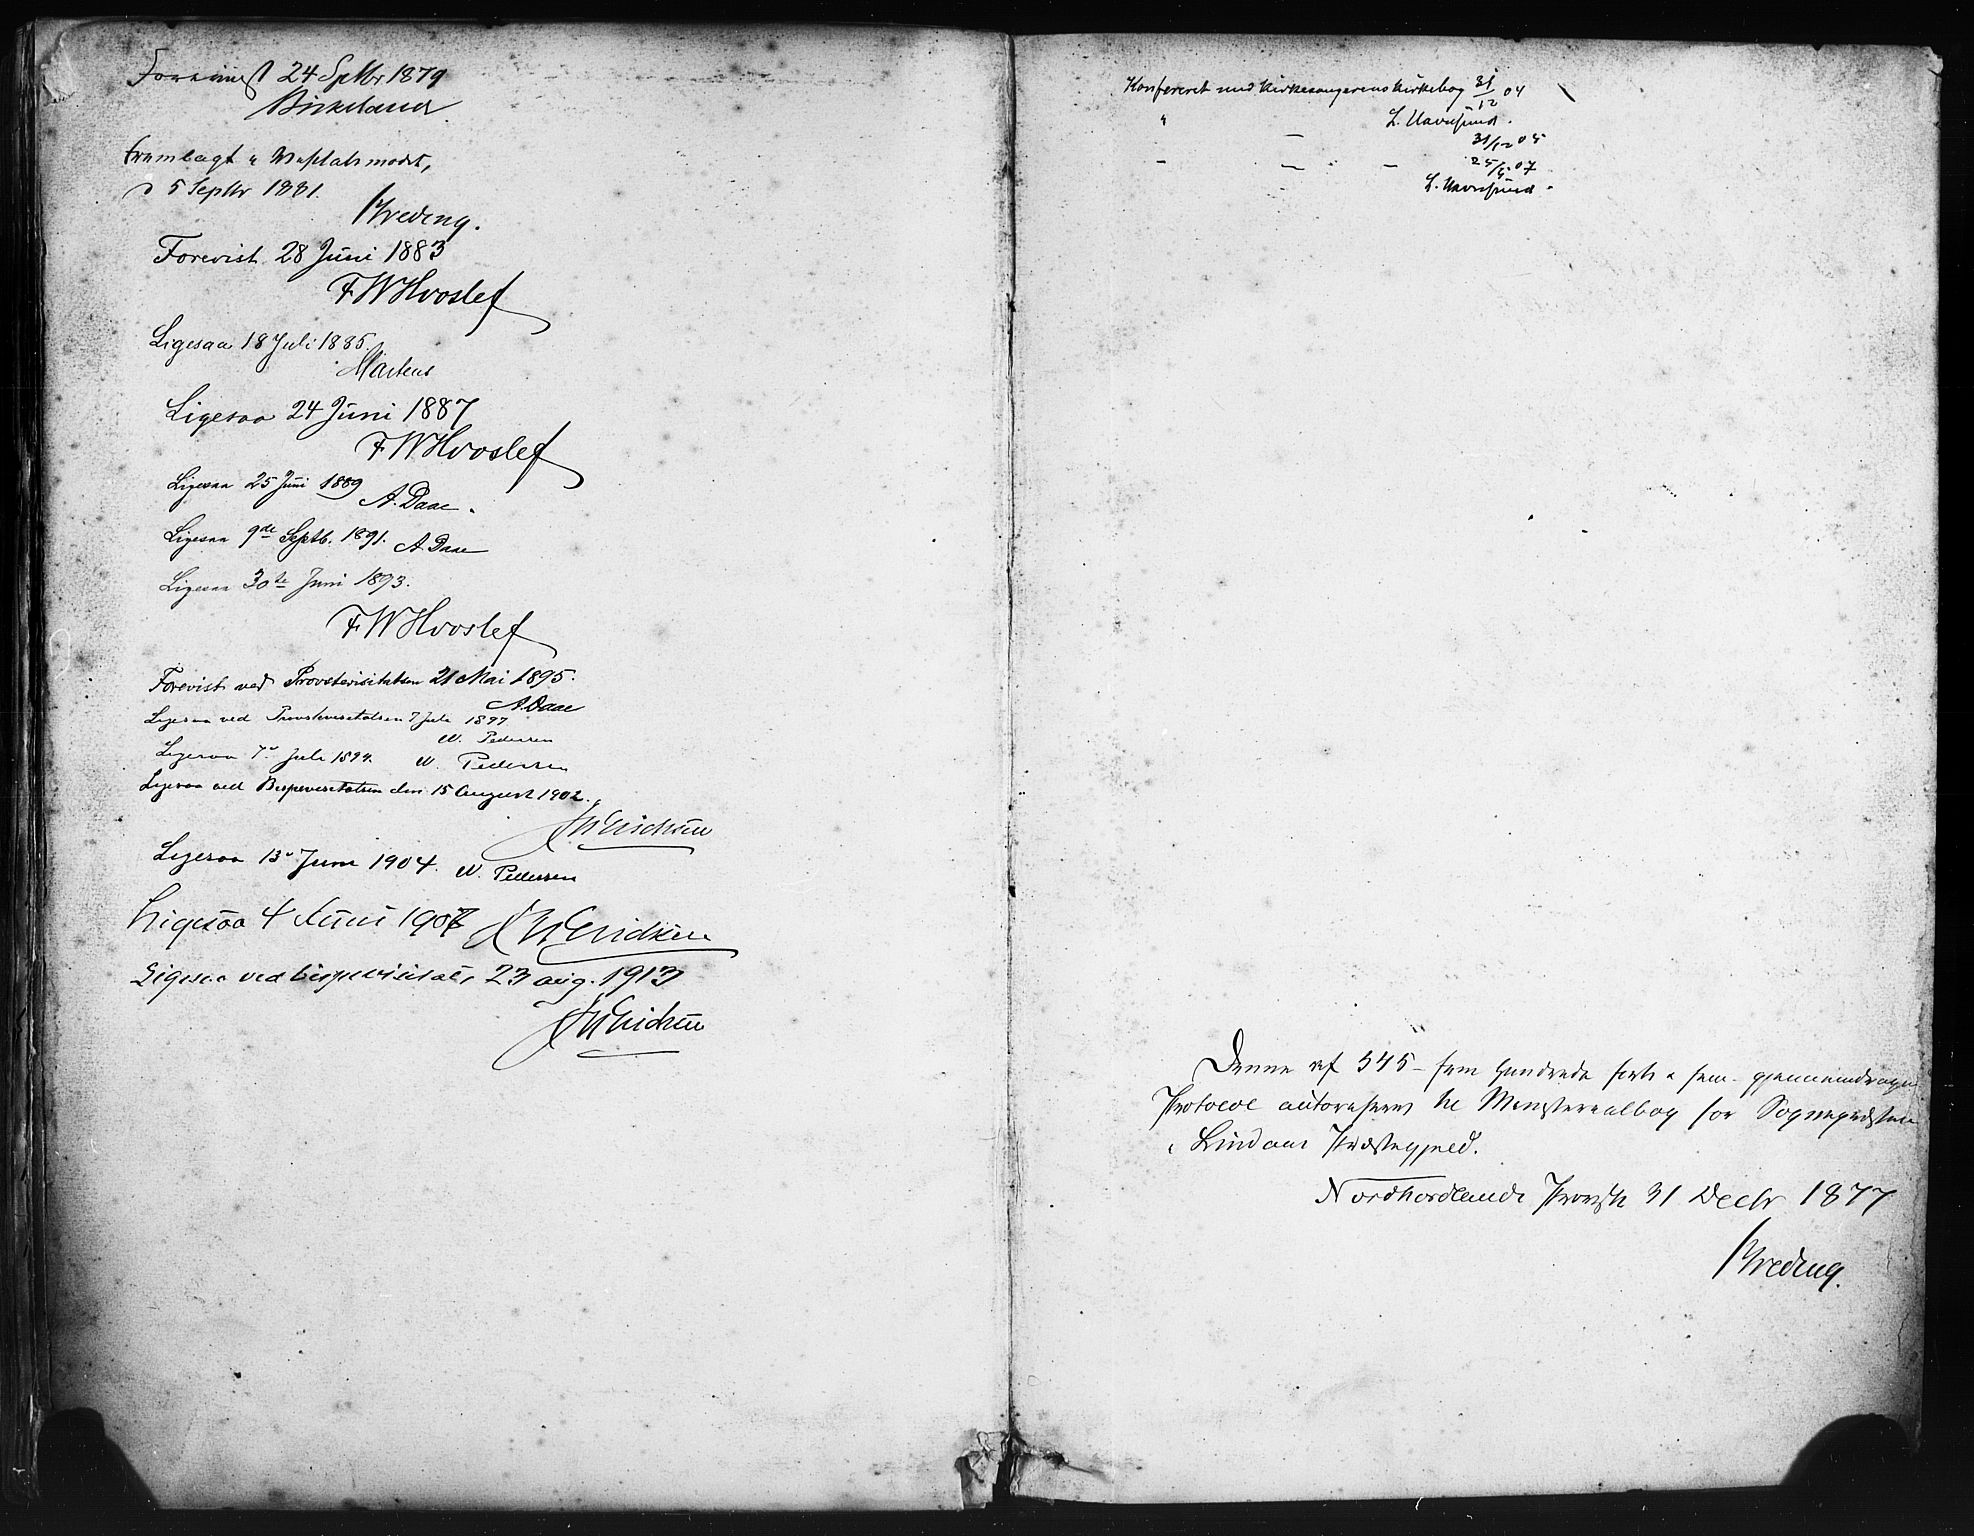 Forevist 24 Septbr 1879
Birkeland
Fremlagt
d 5 Septbr 1881.
Breding.
Forevist 28 Juni 1883
F W Hvoslef
Ligesaa 18 Juli 1885.
Martens
Ligesaa 24 Juni 1887
F W Hvoslef
Ligesaa 25 Juni 1889
A. Daae.
Ligesaa 9de Septb. 1891. A. Daae
Ligesaa 30te Juni 1893.
F W Hvoslef
Forevist ved Provstevisitatsen 21 Mai 1895.
A. Daae
Ligesaa ved Provstevisitatsen 7 Juli 1897
W. Pedersen
Ligesaa 7de Juli 1899. W. Pedersen
Ligesaa ved Bispevisitatsen den 15 August 1902.
J W Erichsen
Ligesaa 13de Juni 1904. W. Pedersen
Ligesaa 4 Juni 1907 J W Erichsen
Ligesaa ved bispevisitats 23 aug. 1913
J W Erichsen
Konfereret med Kirkesangerens Kirkebog 31/12 04
" L. Havnsund.
— 31/12 05
- — - 25/5 07
L. Havnsund.
Denne af 545 - fem Hundrede forti a fem - gjennemdragne
Protocol autoriseres til Ministerialbog for Sognepræsten
i Lindaas Præstegjeld.
Nordhordlands Provsti 31 Decbr 1877
Breding.